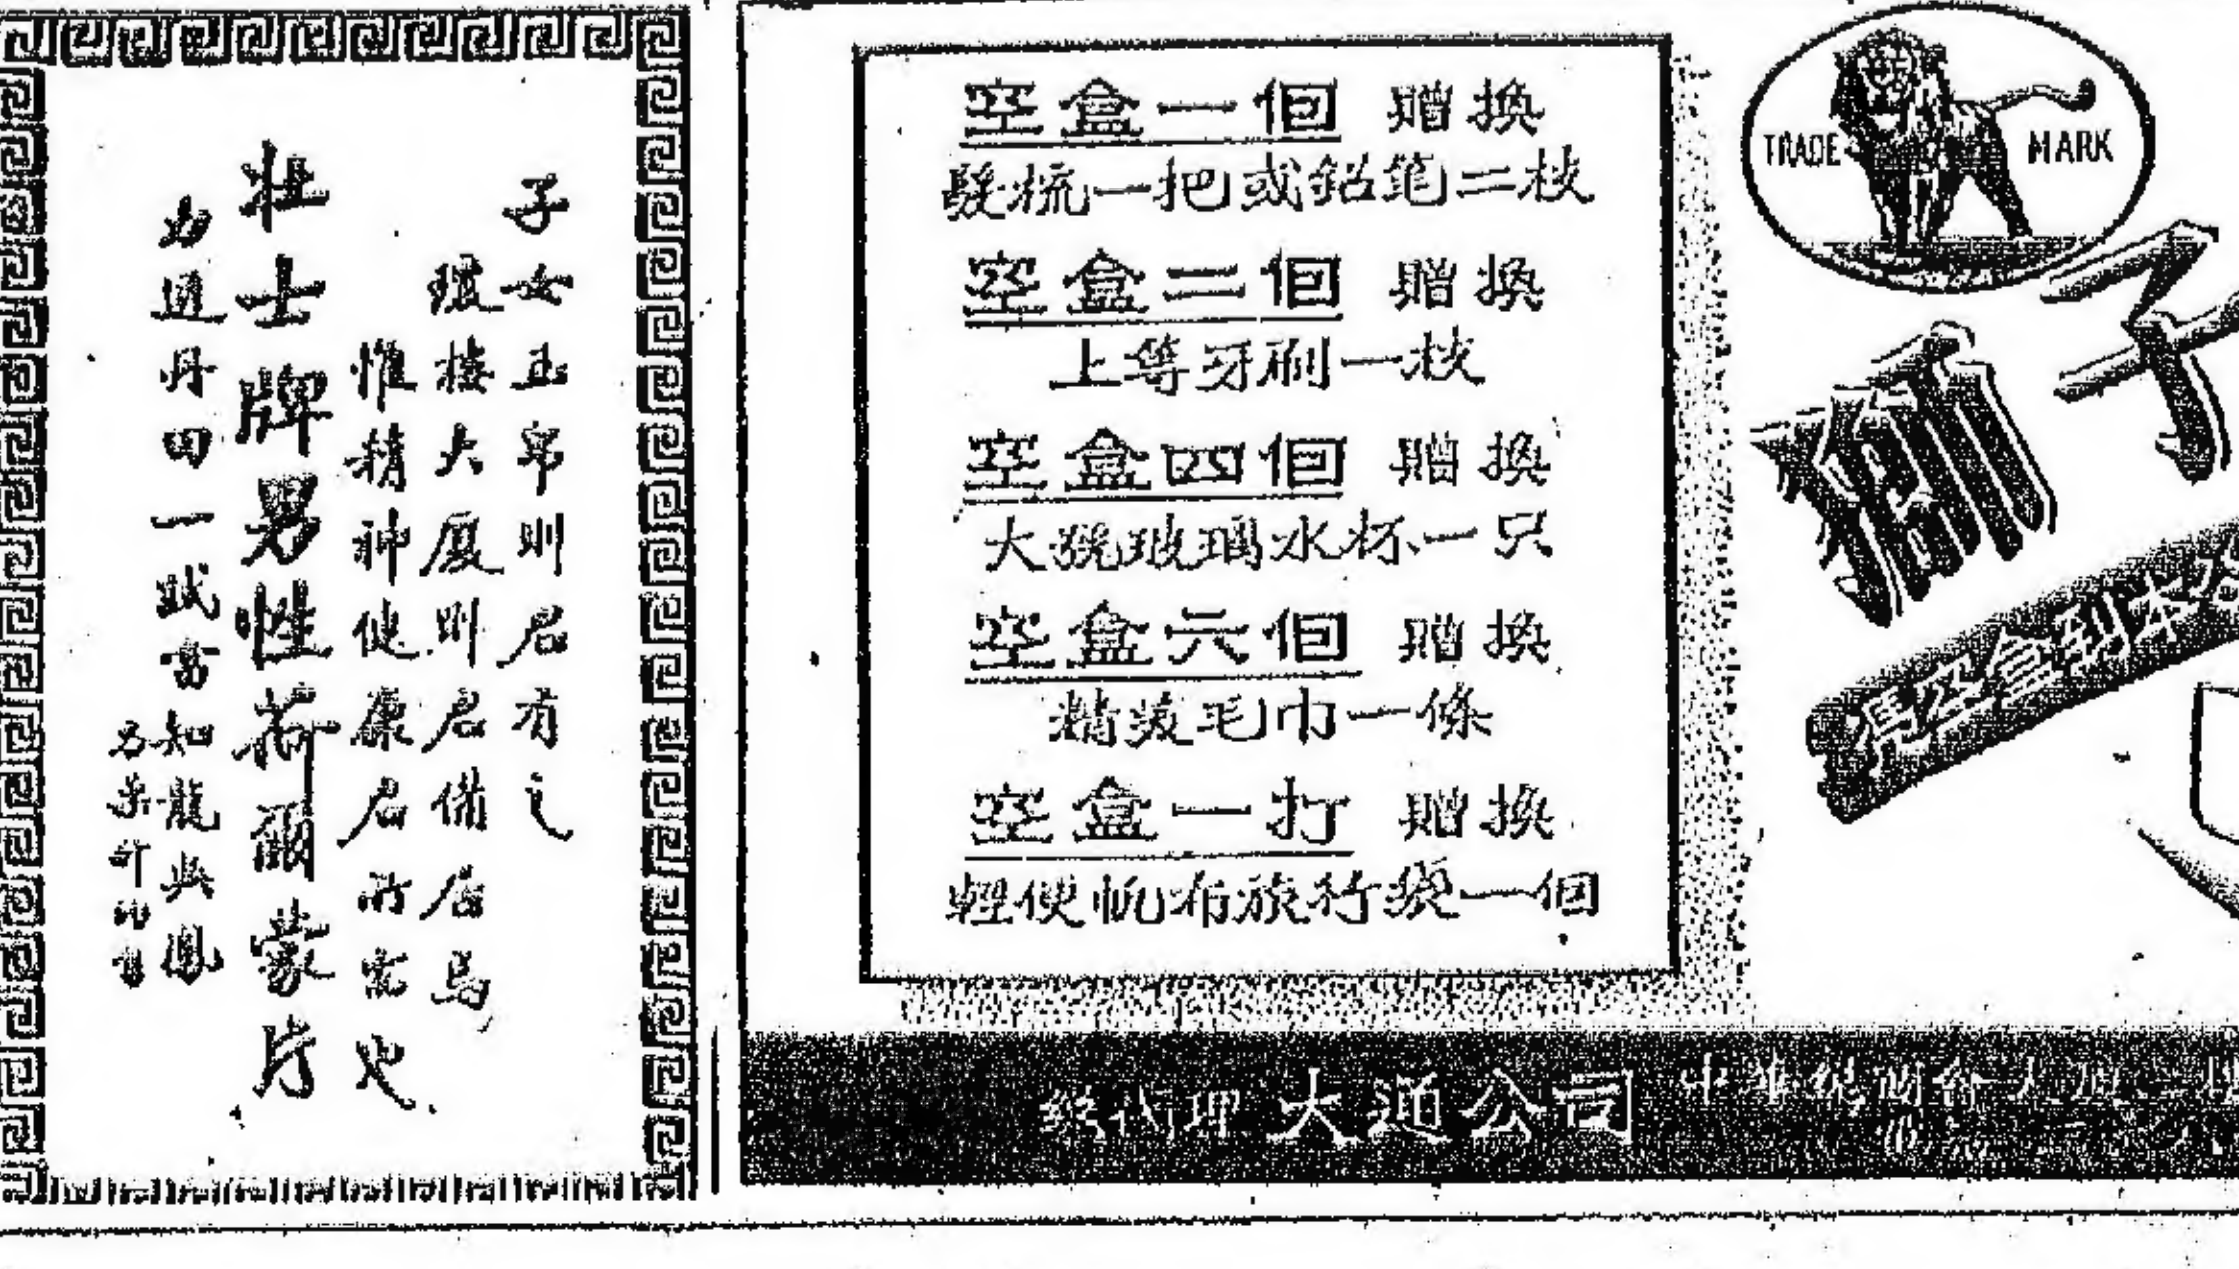 子女玉帛則君有之
瓊樓大廈則君備居焉
惟精神健康君所需也
壯士牌男性荷爾蒙片
力道丹田一試當知龍與鳳
空盒一個 贈換
髮梳一把或鉛筆二枝
空盒二個 贈換
上等牙刷一枝
空盒四個 贈換
大號玻璃水杯一只
空盒六個 贈換
精美毛巾一條
空盒一打 贈換
輕便帆布旅行袋一個
TRADE MARK
子
憑空盒到本公
總代理 大通公司